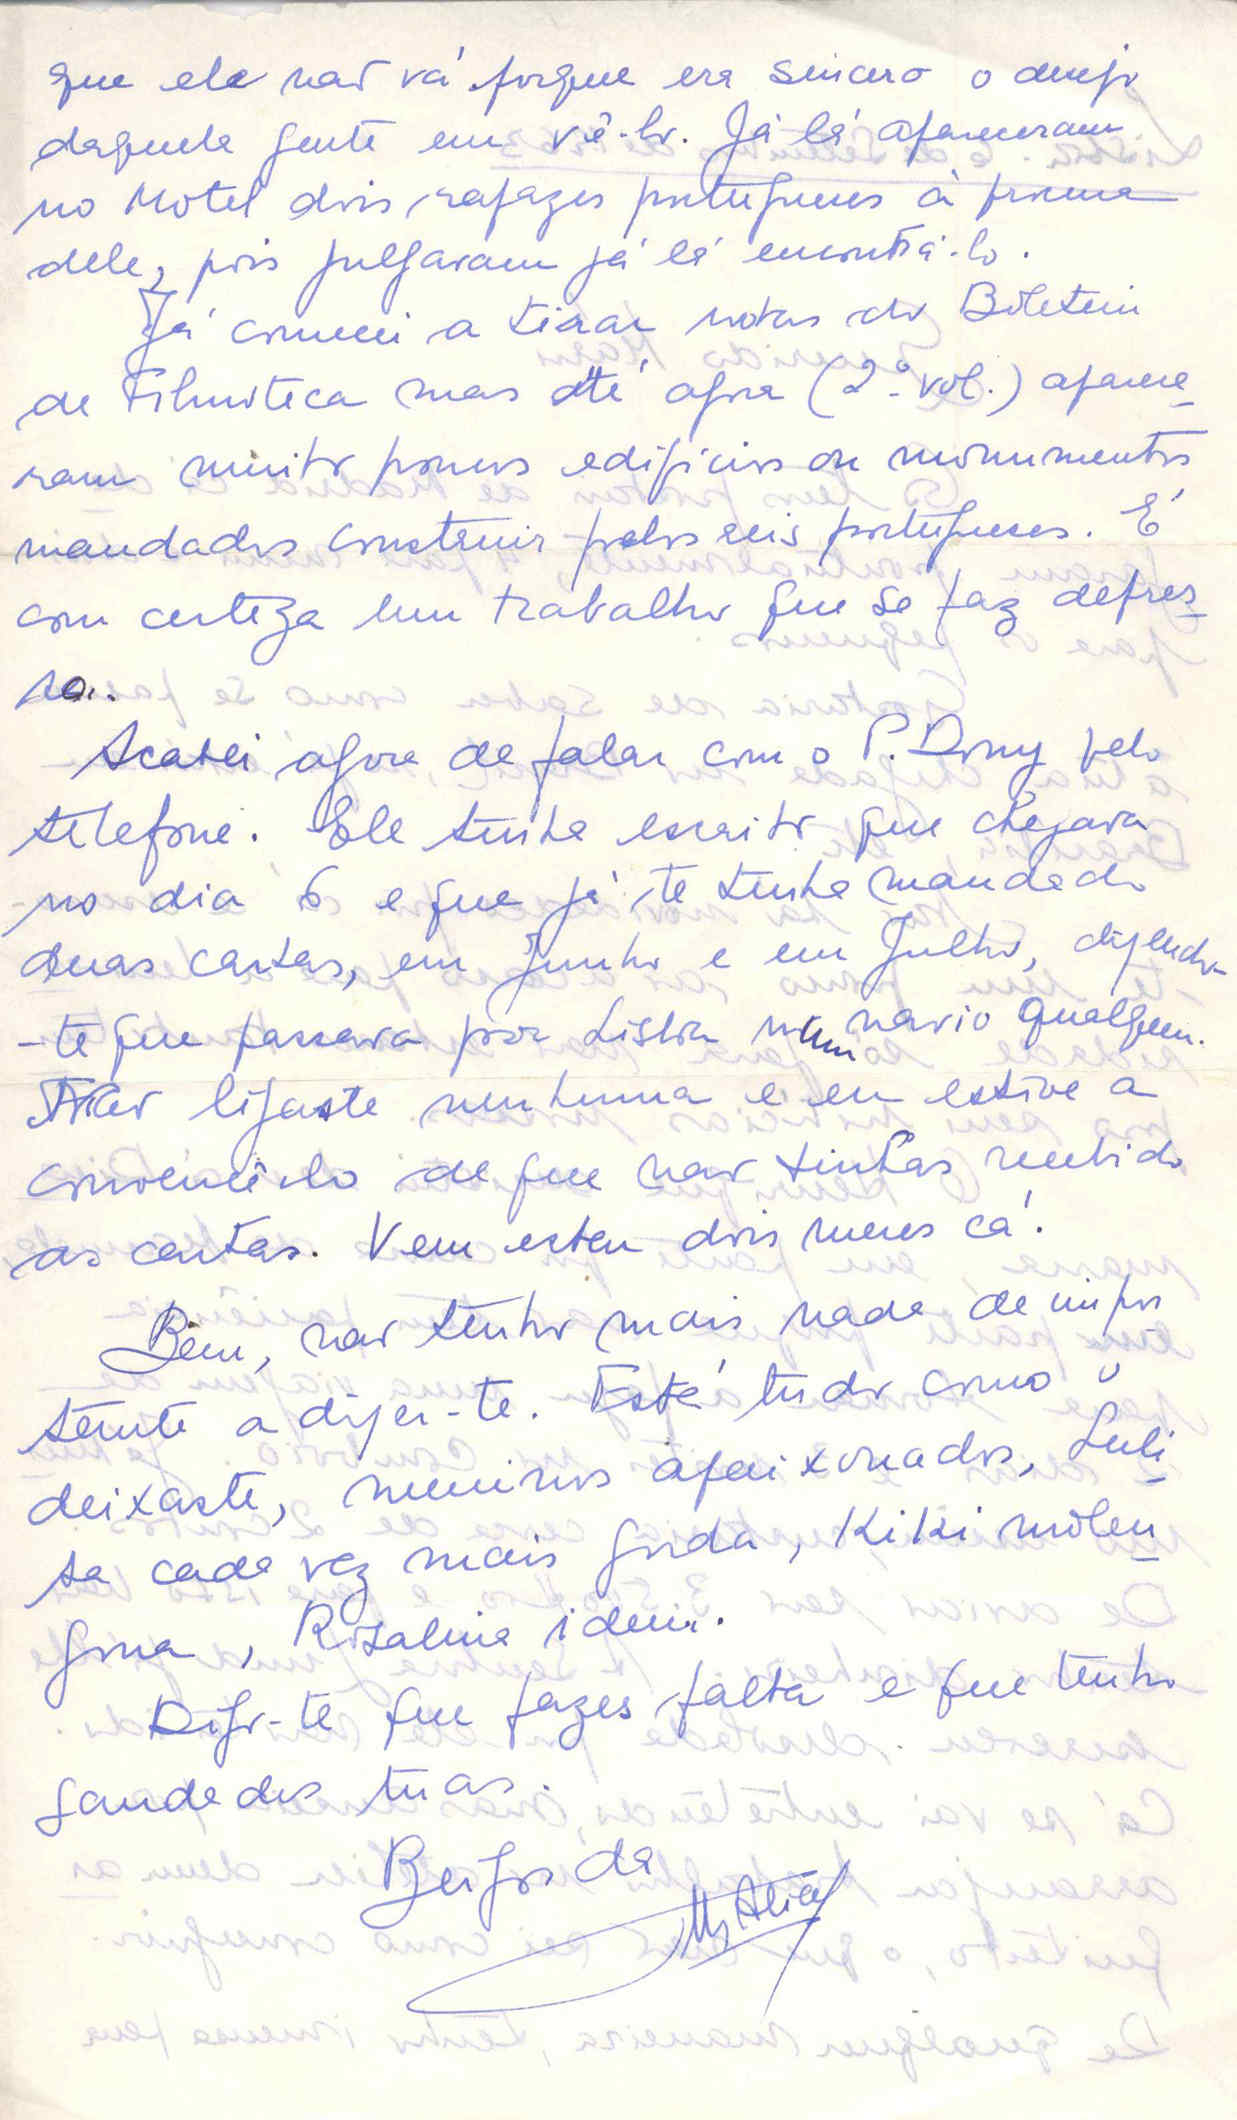 que ele não vá porque era sincero o desejo
daquela gente em vê-lo. Já lá apareceram
no Motel dois rapazes portugueses à procura
dele, pois julgavam já lá encontrá-lo.
Já comecei a tirar notas do Boletim
de Filmoteca mas até agora (2º vol.) apare-
ceram muito poucos edifícios ou monumentos
mandados construir pelos reis portugueses. É
com certeza um trabalho que se faz depres-
sa.
Acabei agora de falar com o P. Dony pelo
telefone. Ele tinha escrito que chegava
no dia 6 e que já te tinha mandado
duas cartas, em Junho e em Julho, dizendo-
-te que passava por Lisboa num navio qualquer.
Não ligaste nenhuma e eu estive a
convencê-lo de que não tinhas recebido
as cartas. Vem estar dois meses cá.
Bem, não tenho mais nada de impor
tante a dizer-te. Está tudo como o
deixaste, meninos apaixonados, Luli-
ta cada vez mais gorda, Kiki molen-
gona, Rosalina idem.
Digo-te que fazes falta e que tenho
saudades tuas.
Beijos da